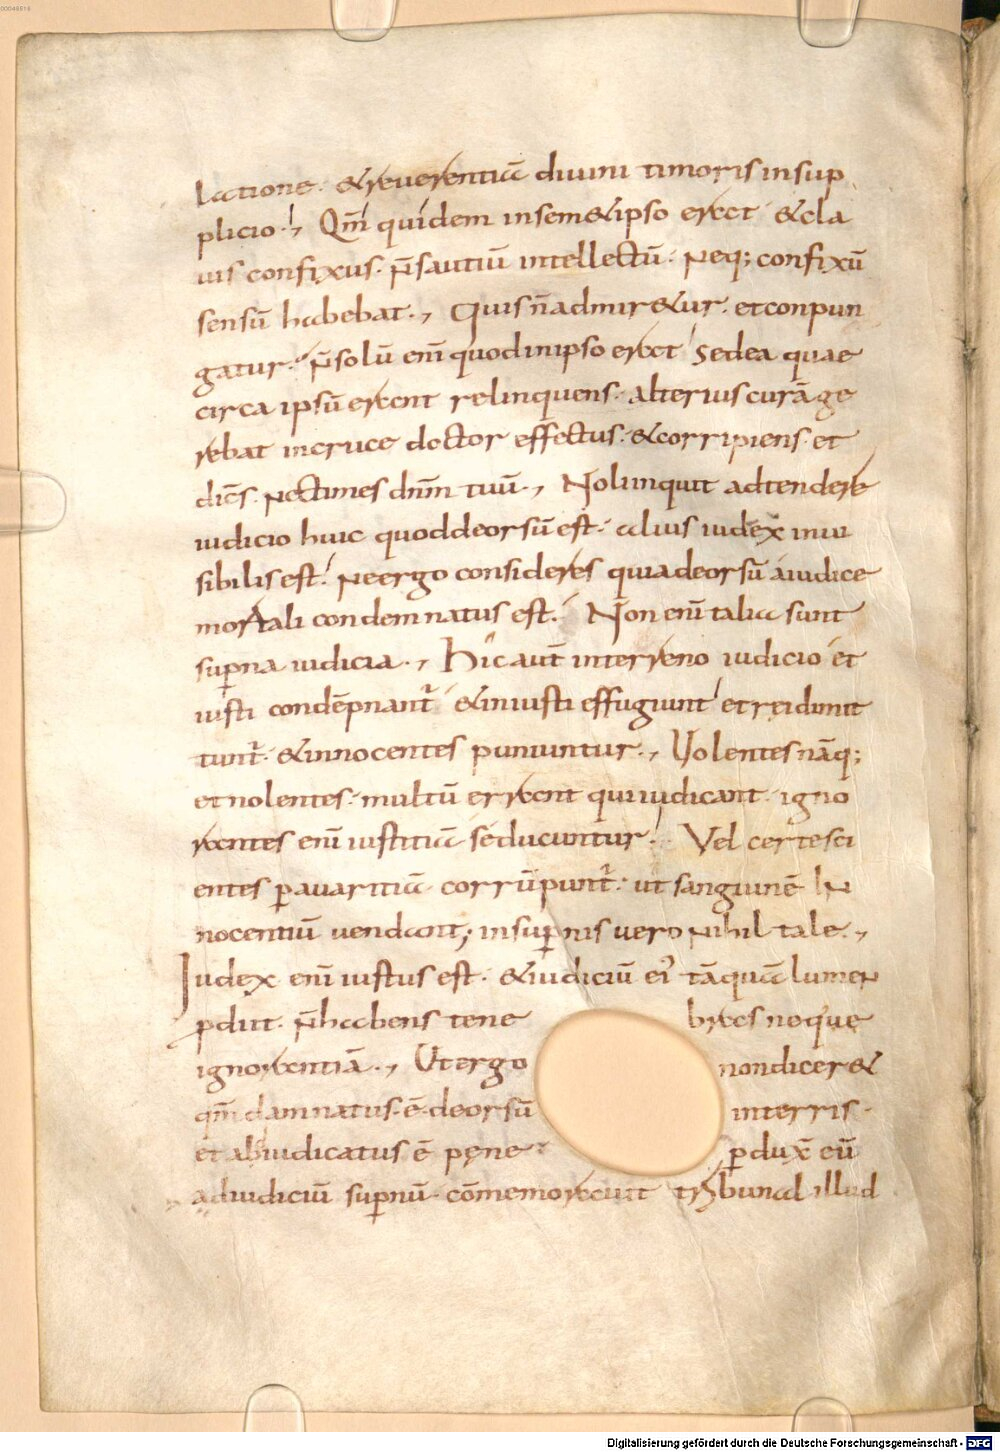 00048518
latione. & reuerentiā diuini timoris in sup
plicio·!, Qm̄ quidem in sem&ipso erat & cla
uis confixus. n̄ sautiū intellectū. neq; confixū
sensū habebat., Quis n̄ admir&ur. et conpun
gatur. n̄ solū eni̅ quod in ipso erat! sed ea quae
circa ipsū erant relinquens. alterius curā ge
rebat in cruce doctor effectus. & corripiens et
dices. nec times dn̄m tuū., Nol inquit adtendere
iudicio huic quod deorsū est. alius iudex inui
sibilis est! ne ergo consideres quia deorsū a iudice
mortali condemnatus est.! Non eni̅ talia sunt
suꝑna iudicia., Hic aut̄ in terreno iudicio et
iusti condēpnant᷑ & iniusti effugiunt! et rei dimit
tunt᷑. & innocentes puniuntur., Uolentes nāq;
et nolentes. multū errant qui iudicant. igno
rantes eni̅ iustitiā seducuntur! Vel certe sci
entes ꝑ auaritiā corrūpunt᷑. ut sanguinē in
nocentiū uendant; in suꝑnis uero nihil tale.,
Iudex eni̅ iustus est. & iudiciū ei᾽ tāquā lumen
ꝓdiit. n̄ habens tene bras neque
ignorantiā., Ut ergo non dicer&
qm̄ damnatus ē deorsū in terris.
et abiudicatus ē pęne ꝑdux̄ eū
ad iudiciū suꝑnū. cōmemorauit tribunal illud
Digitalisierung gefördert durch die Deutsche Forschungsgemeinschaft - DFG